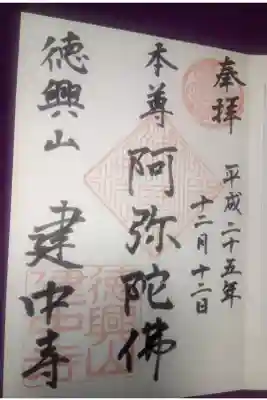 奉拝
平成二十五年
十二月十二日
本尊
阿弥陀佛
徳興山
建中寺
徳興山
建中寺